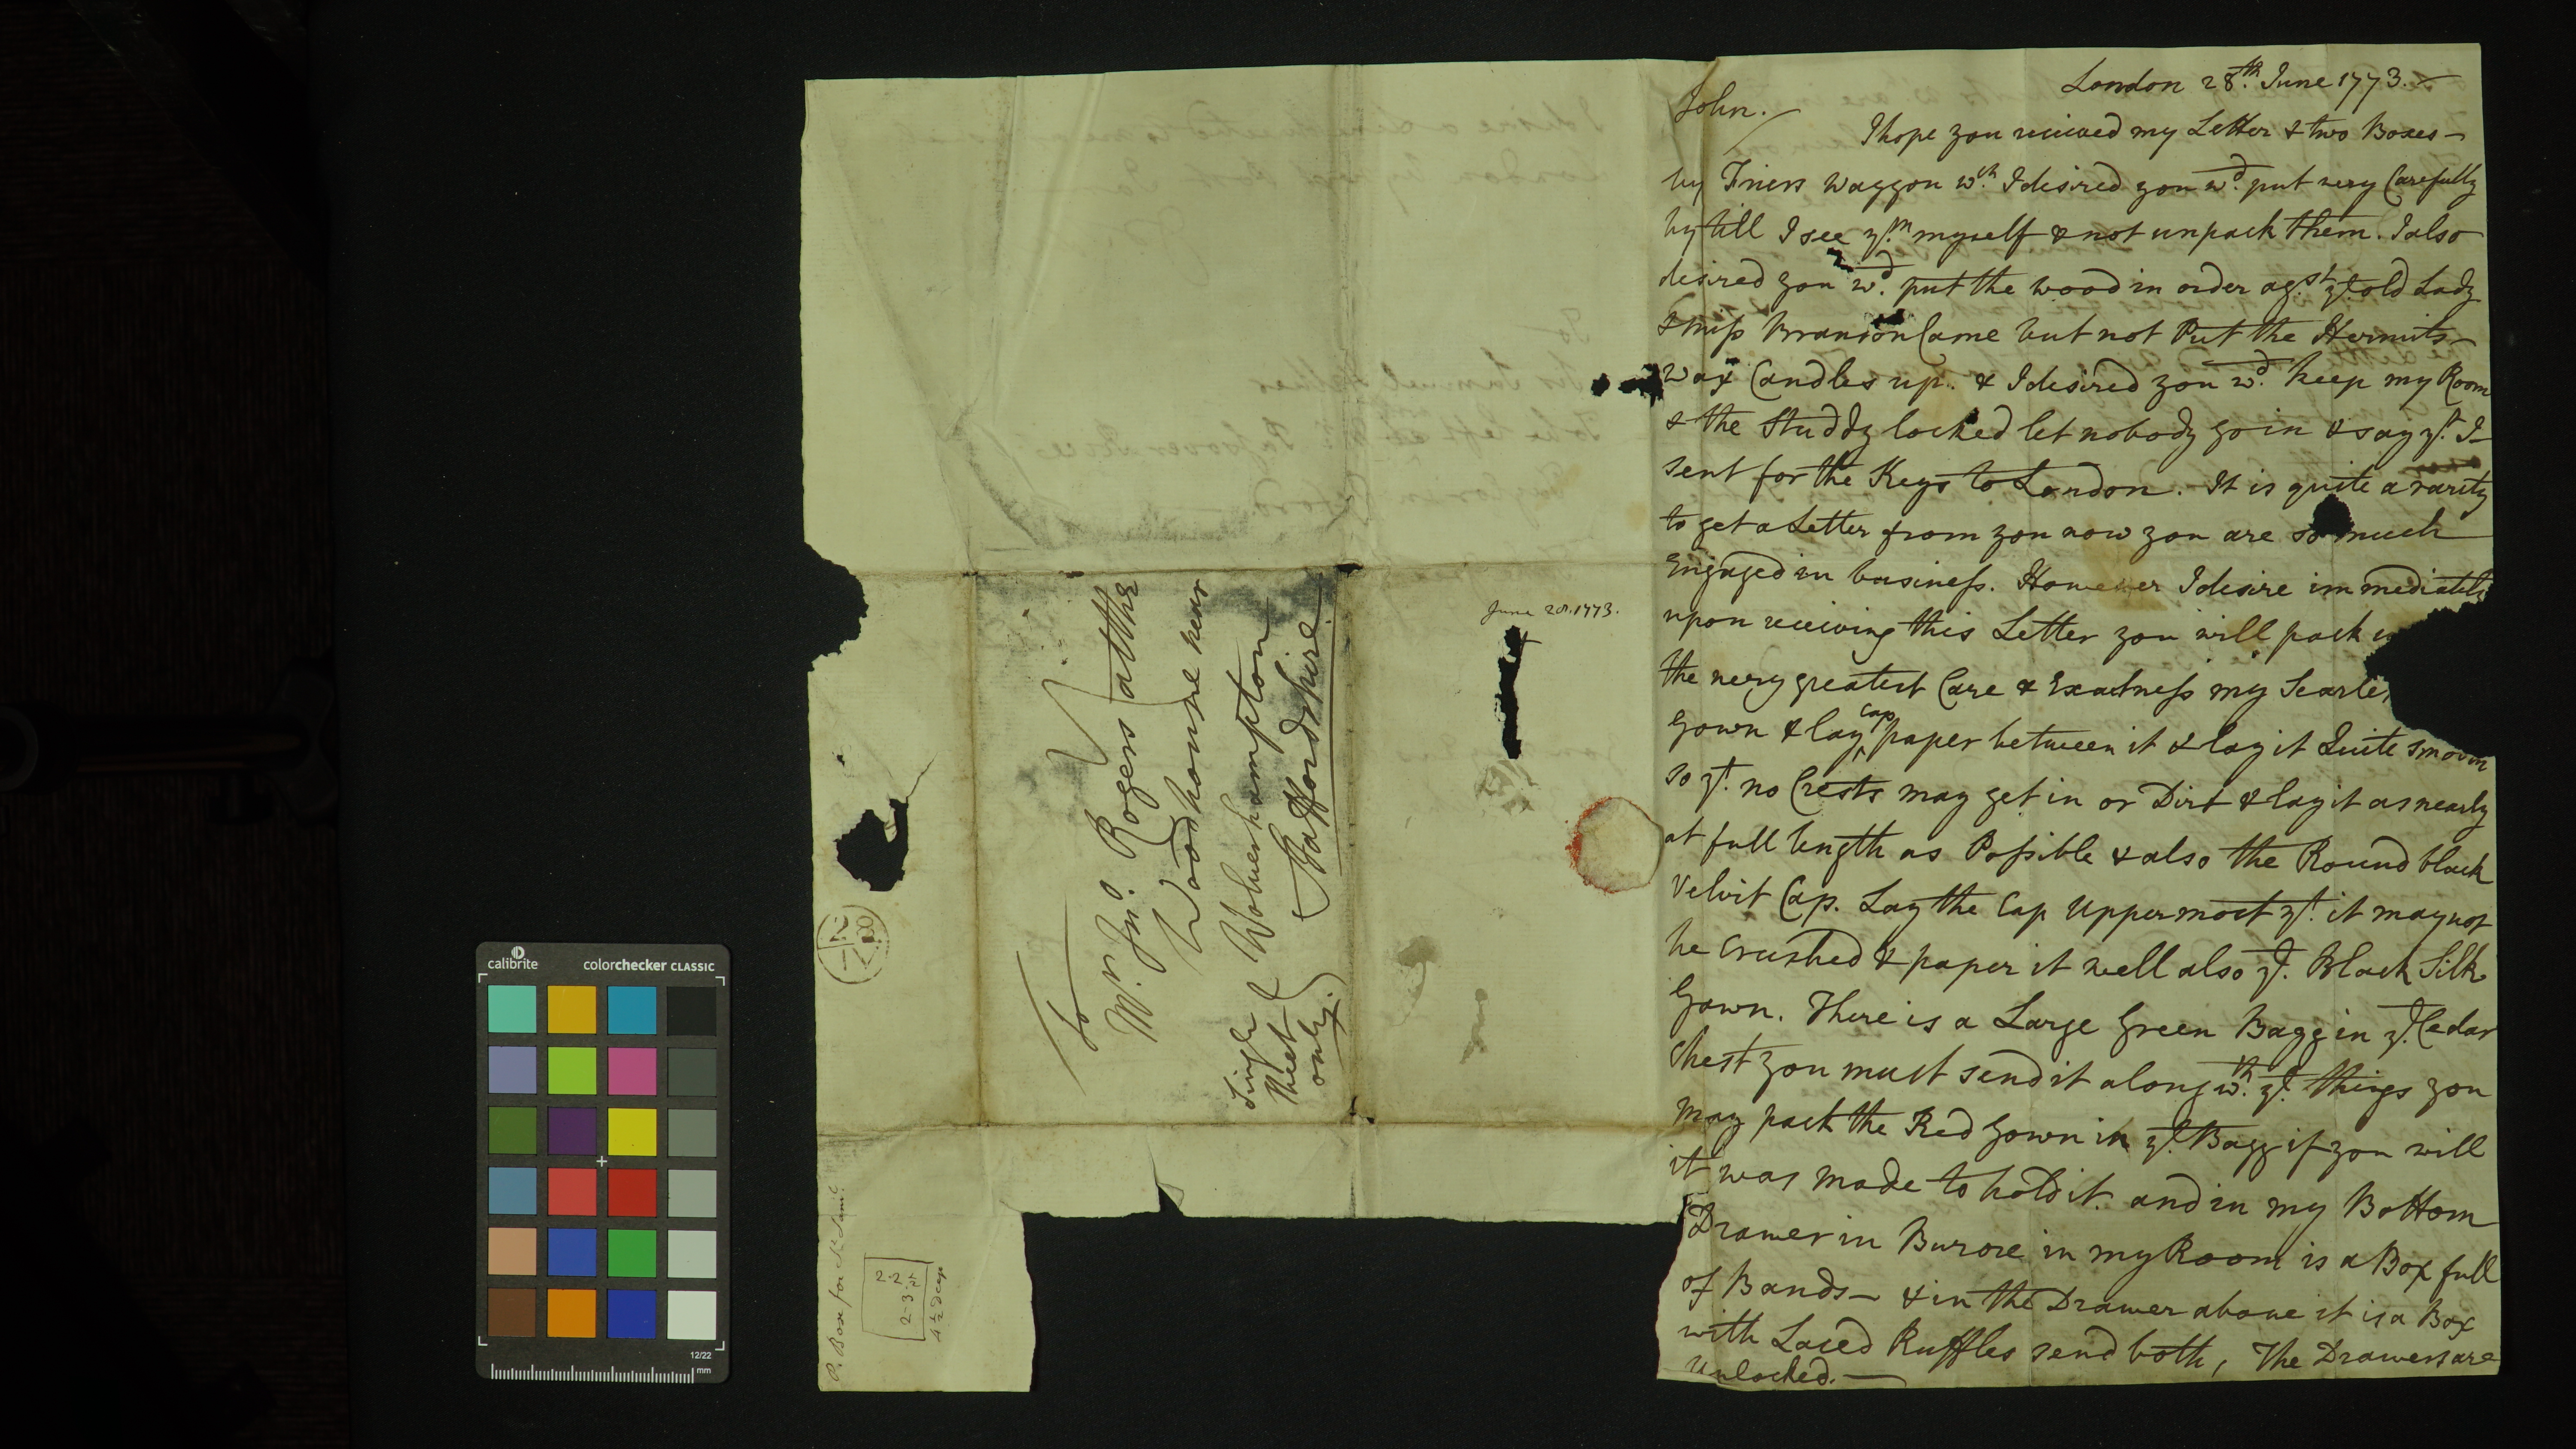 London 28.th June 1773.
John.
I hope you received my Letter & two Boxes
by Friers Waggon w.ch I desired you w.d put very Carefully
by till I see y.m myself & not unpack them. I also
desired you w.d put the wood in order ag.st y.e old Lady
& miss Branson Came but not Put the Hermits
Wax Candles up. & I desired you w.d keep my Room
& the Studdy locked let nobody go in & say y.t I
sent for the Keys to London. It is quite a rarity
to get a Letter from you now you are so much
Engaged in business. However I desire immediately
upon receiving this Letter you will pack
the very greatest Care & Exactness my Scarle
Gown & lay Cap paper between it & lay it Quite smooth
so y.t no Crests may get in or Dirt & lay it as nearly
at full length as Possible & also the Round black
Velvit Cap. Lay the Cap Uppermost y.t it may not
be Crushed & paper it well also y.e Black Silk
Gown. There is a Large Green Bagg in y.e Cedar
Chest you must send it along w.th y.e things you
may pack the Red Gown in y.e Bagg if you will
it was made to hold it. and in my Bottom
Drawer in Burore in my Room is a Box full
of Bands & in the Drawer above it is a Box
with Laced Ruffles send both, The Drawers are
Unlocked.
June 28. 1773.
To
M.r Jn.o Rogers at the
Woodhouse near
Wolverhampton
Staffordshire
Single
Sheet
only.
P. Box for M.r Sam.l
2-2 1/2
2-3
4 1/2 deep
calibrite
colorchecker CLASSIC
12/22
mm